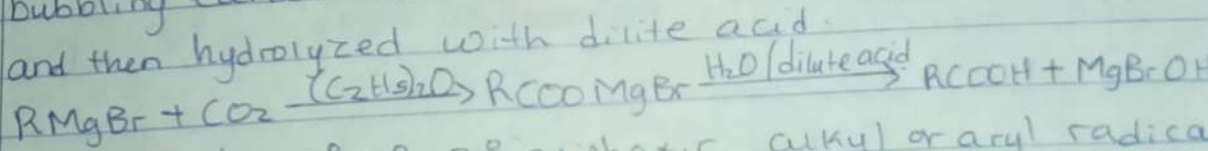 bubbling
and then hydrolyzed with dilite acid.
RMgBr + CO2 (C2H5)2O→ RCOOMgBr H2O/dilute acid→ RCOOH + MgBrOH
alkyl or aryl radica